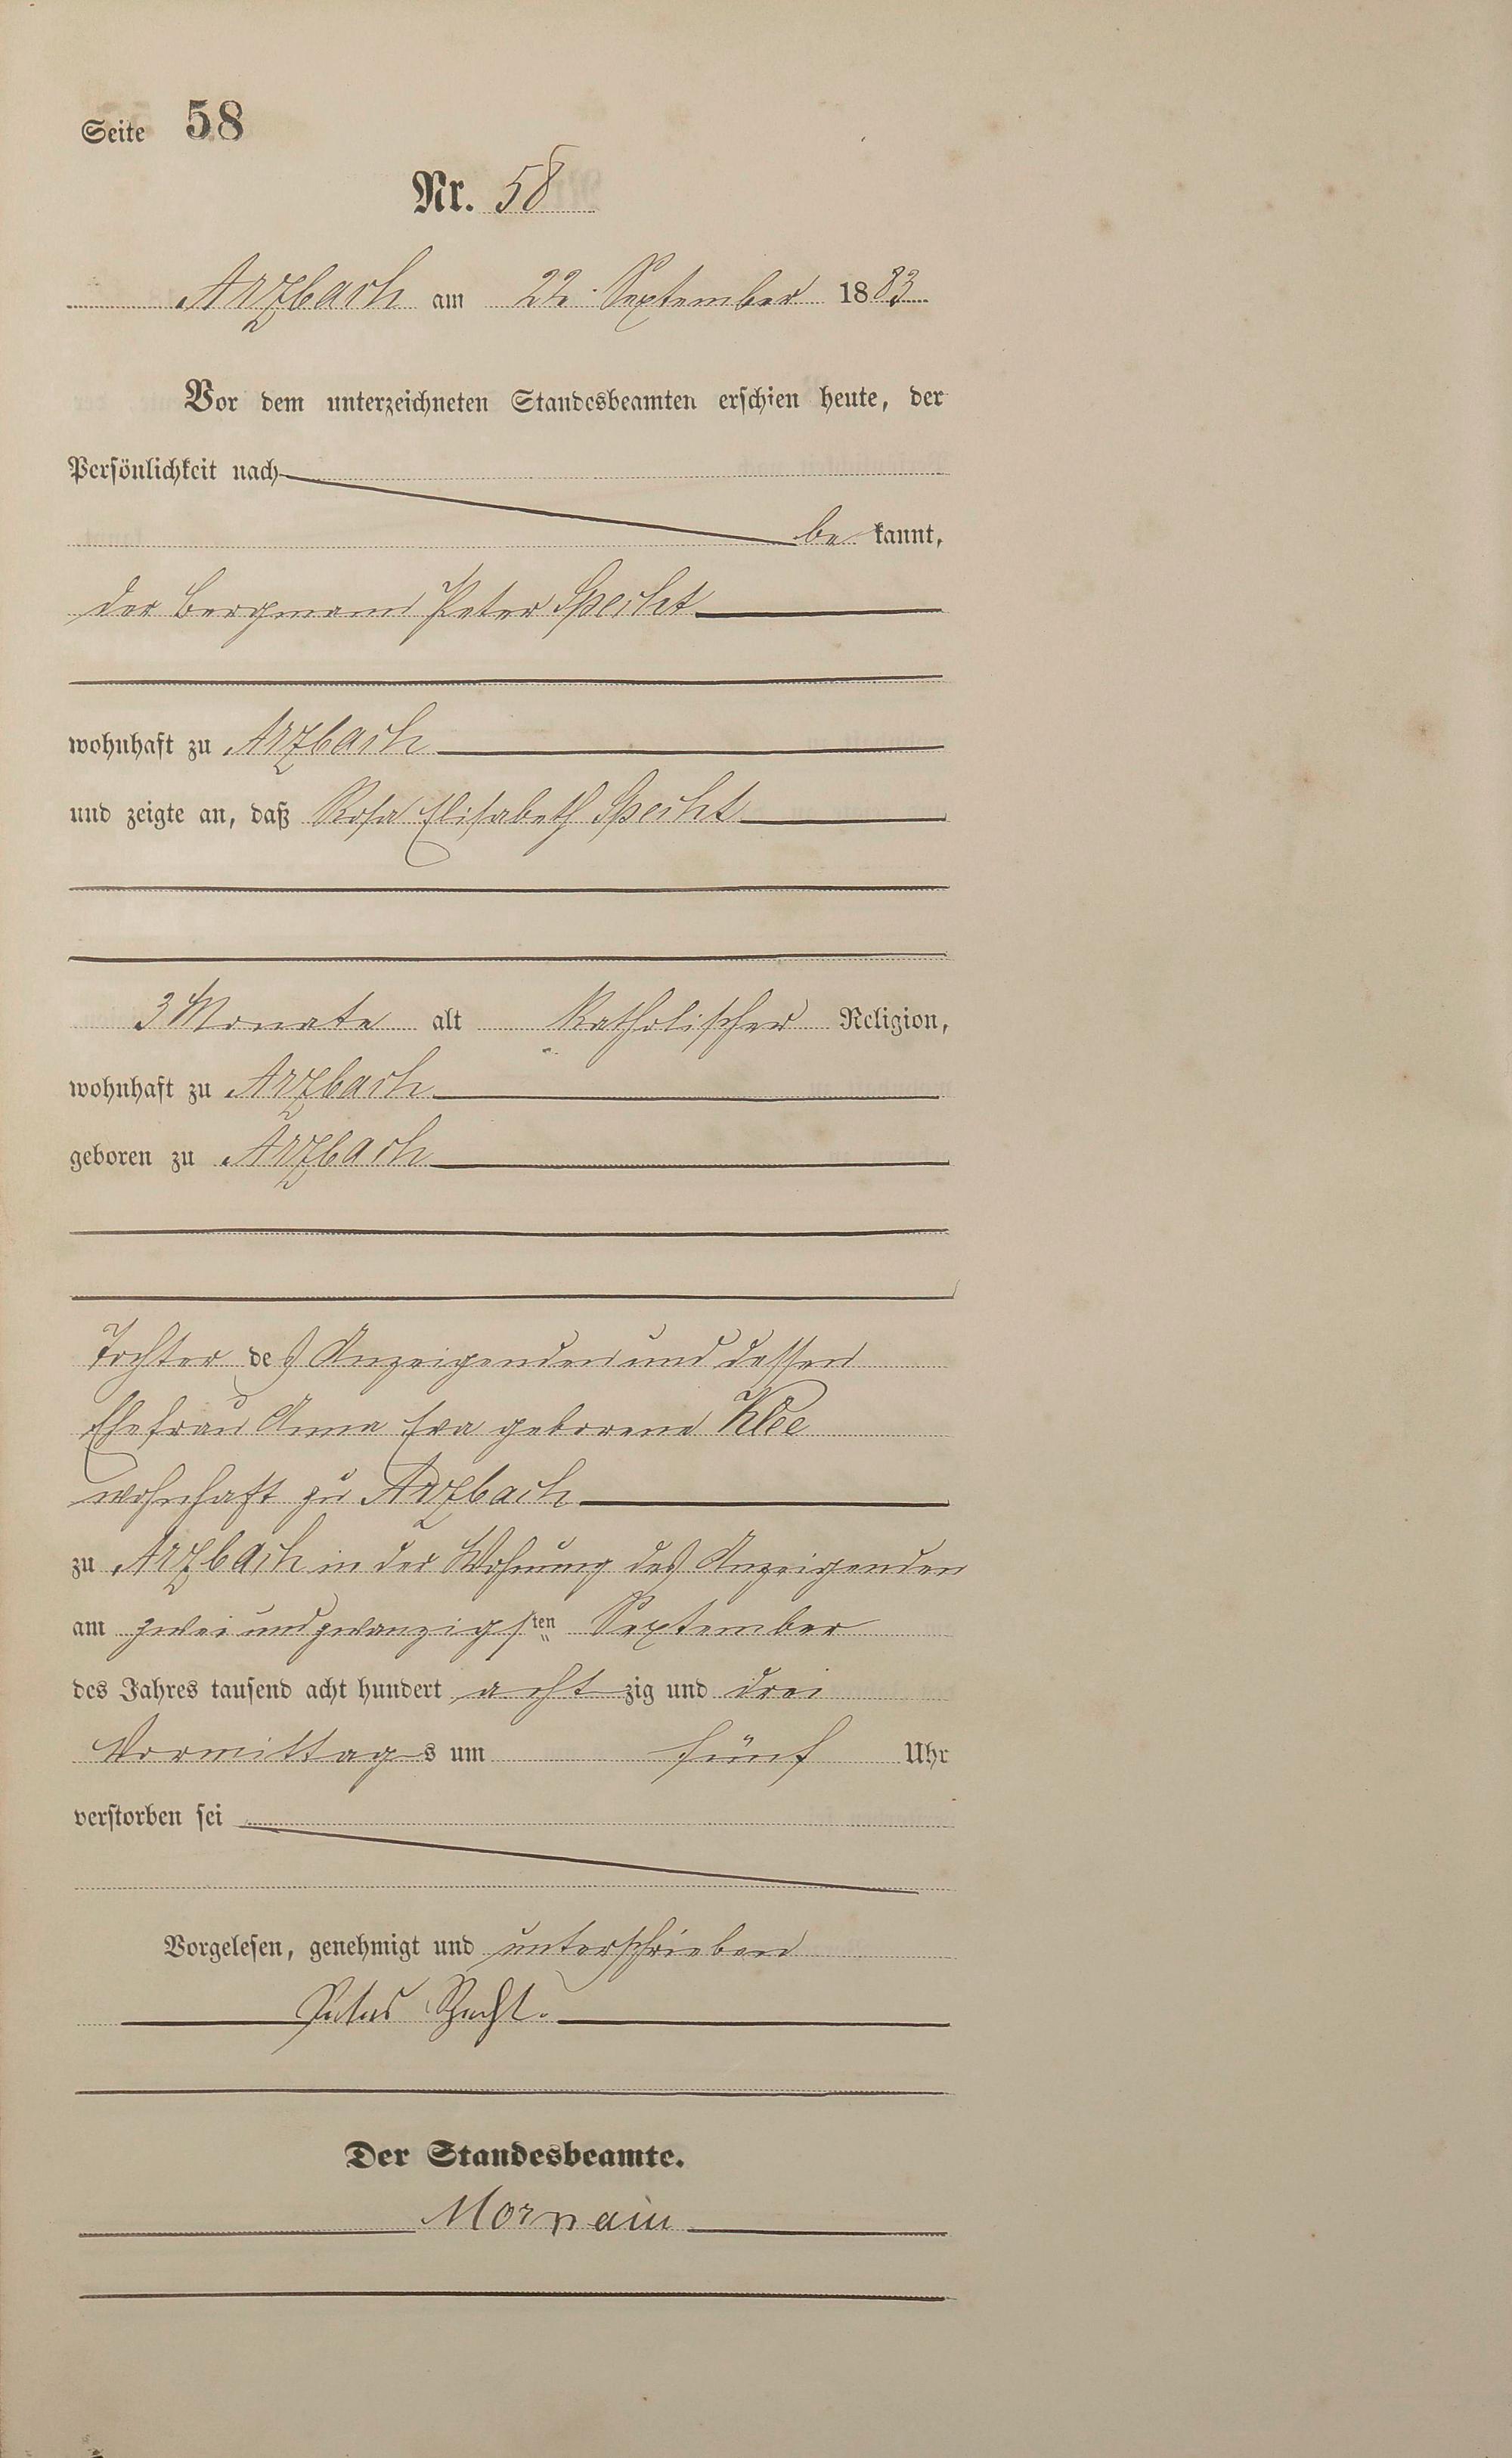 Seite 58
Nr. 58
Arzbach am 22. September 1883
Vor dem unterzeichneten Standesbeamten erschien heute, der
Persönlichkeit nach
be kannt,
der Bergmann Peter Specht
wohnhaft zu Arzbach
und zeigte an, daß Rosa Elisabeth Specht
3 Monate alt katholischer Religion,
wohnhaft zu Arzbach
geboren zu Arzbach
Tochter des Anzeigenden und dessen
Ehefrau Anna Eva geborene Klee
wohnhaft zu Arzbach
zu Arzbach in der Wohnung des Anzeigenden
am zwei und zwanzigsten September
des Jahres tausend acht hundert acht zig und drei
Vormittags um fünf Uhr
verstorben sei
Vorgelesen, genehmigt und unterschrieben
Peter Specht.
Der Standesbeamte.